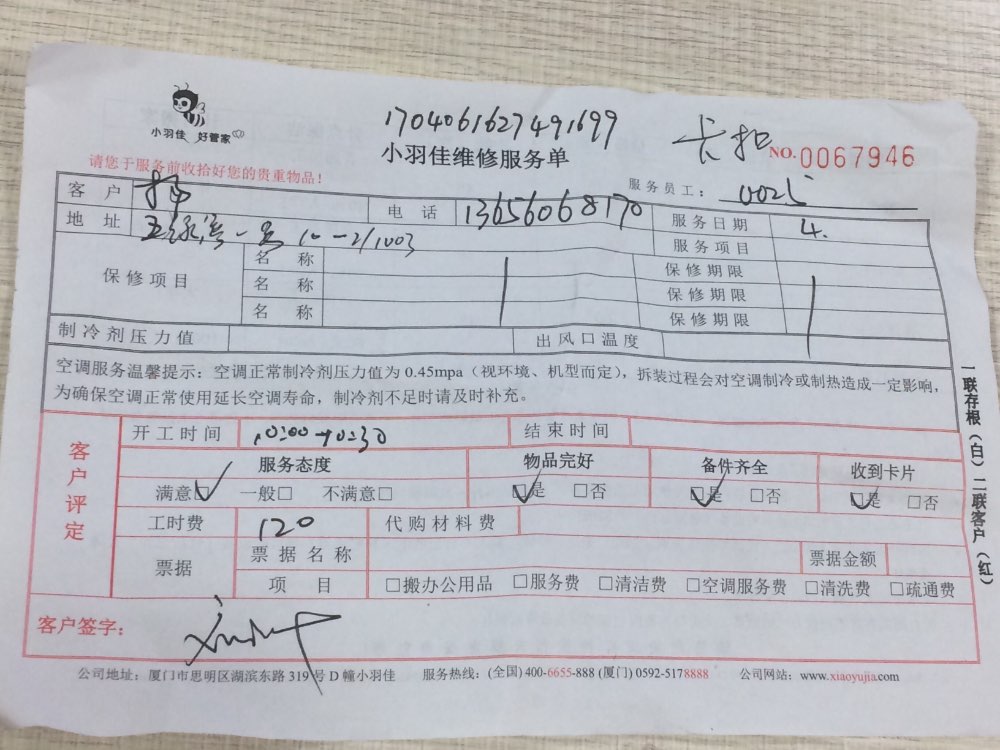 小羽佳 好管家
1704061627491699
小羽佳维修服务单
卡扣
NO.0067946
请您于服务前收拾好您的贵重物品！
服务员工： 0025
客户 电话 13656068170 服务日期 4.
地址 一号 10-2/1003 服务项目
保修项目 名称 保修期限
名称 保修期限
名称 保修期限
制冷剂压力值 出风口温度
空调服务温馨提示：空调正常制冷剂压力值为 0.45mpa（视环境、机型而定），拆装过程会对空调制冷或制热造成一定影响，
为确保空调正常使用延长空调寿命，制冷剂不足时请及时补充。
客户评定
开工时间 10:00-10:30 结束时间
服务态度 物品完好 备件齐全 收到卡片
满意☑ 一般□ 不满意□ ☑是 □否 ☑是 □否 ☑是 □否
工时费 120 代购材料费
票据 票据名称 票据金额
项目 □搬办公用品 □服务费 □清洁费 □空调服务费 □清洗费 □疏通费
客户签字：
公司地址：厦门市思明区湖滨东路 319 号 D 幢小羽佳 服务热线：(全国) 400-6655-888 (厦门) 0592-5178888 公司网站：www.xiaoyujia.com
一联存根（白）二联客户（红）